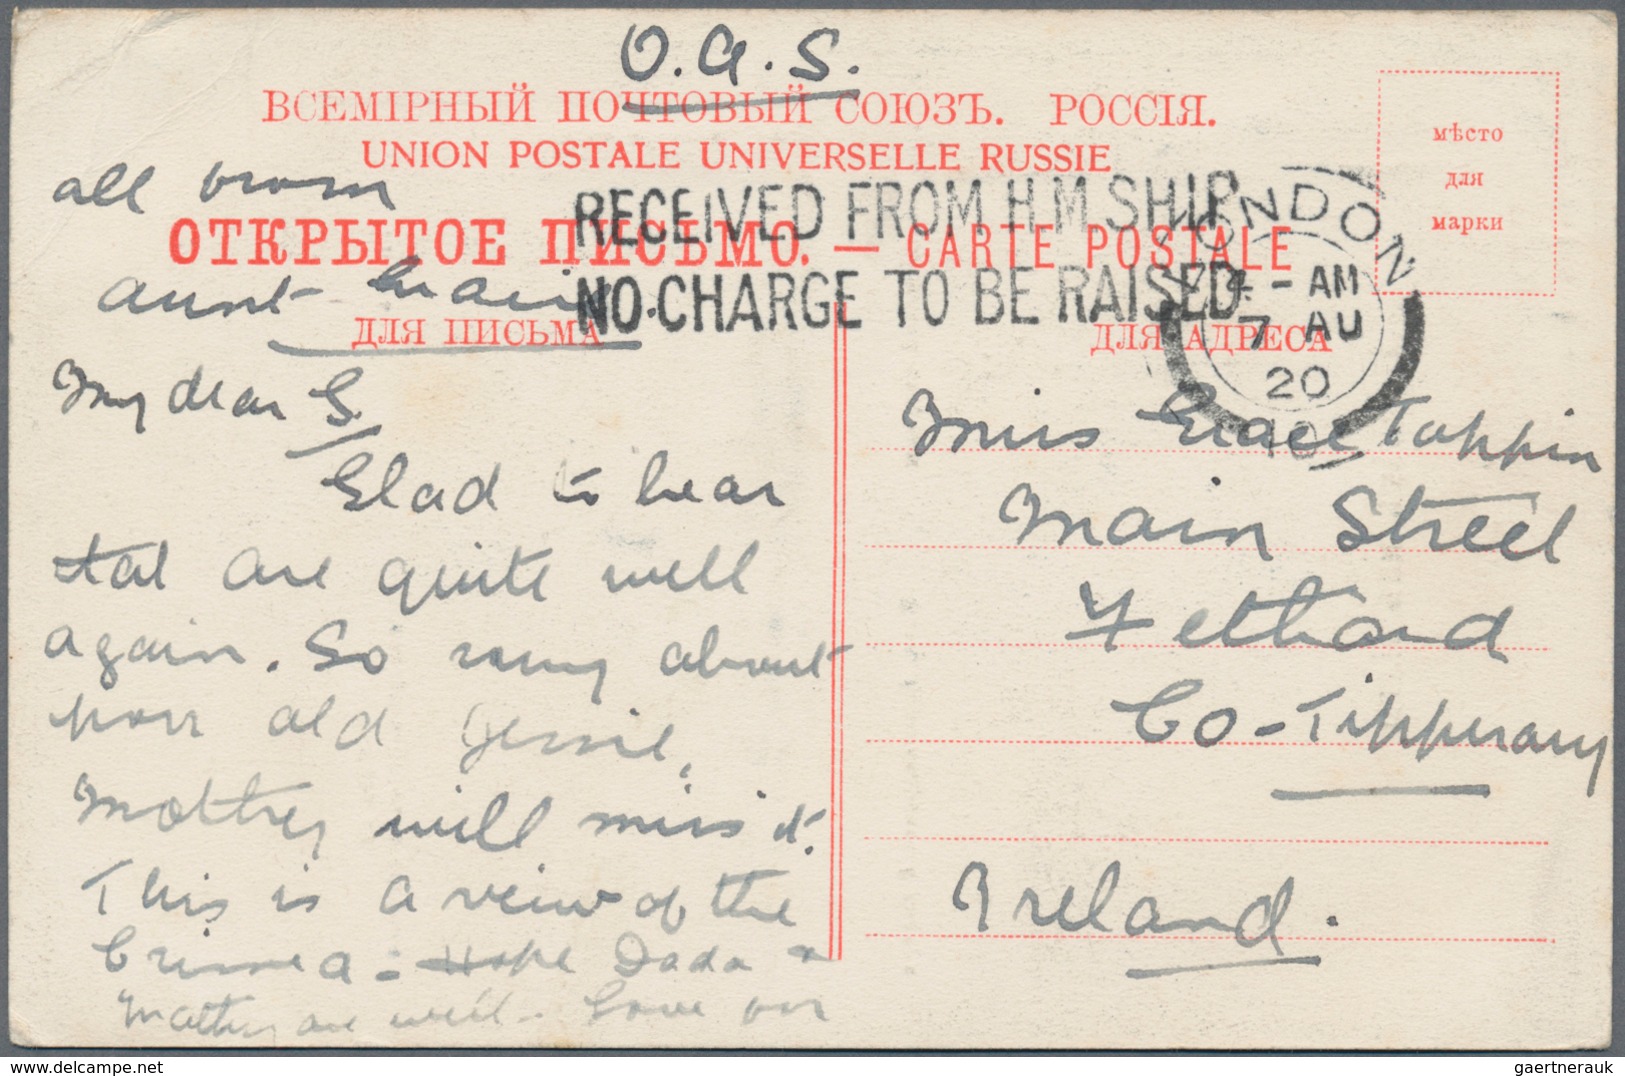 O.A.S.
ВСЕМІРНЫЙ ПОЧТОВЫЙ СОЮЗЪ. РОССІЯ.
UNION POSTALE UNIVERSELLE RUSSIE
мѣсто
для
марки
all from
RECEIVED FROM H.M. SHIP
NO CHARGE TO BE RAISED
ОТКРЫТОЕ ПИСЬМО. — CARTE POSTALE
aunt
LONDON
4 - AM
7 AU
20
ДЛЯ ПИСЬМА
ДЛЯ АДРЕСА
My dear G.
Glad to hear
tat are quite well
again. So sorry about
poor old Jessie,
Mother will miss it.
This is a veiw of the
Crimea - Hope Dada
Mother are well - Love
Miss Grace Tappin
Main Street
Fethard
Co-Tipperary
Ireland.
gaertnerauk